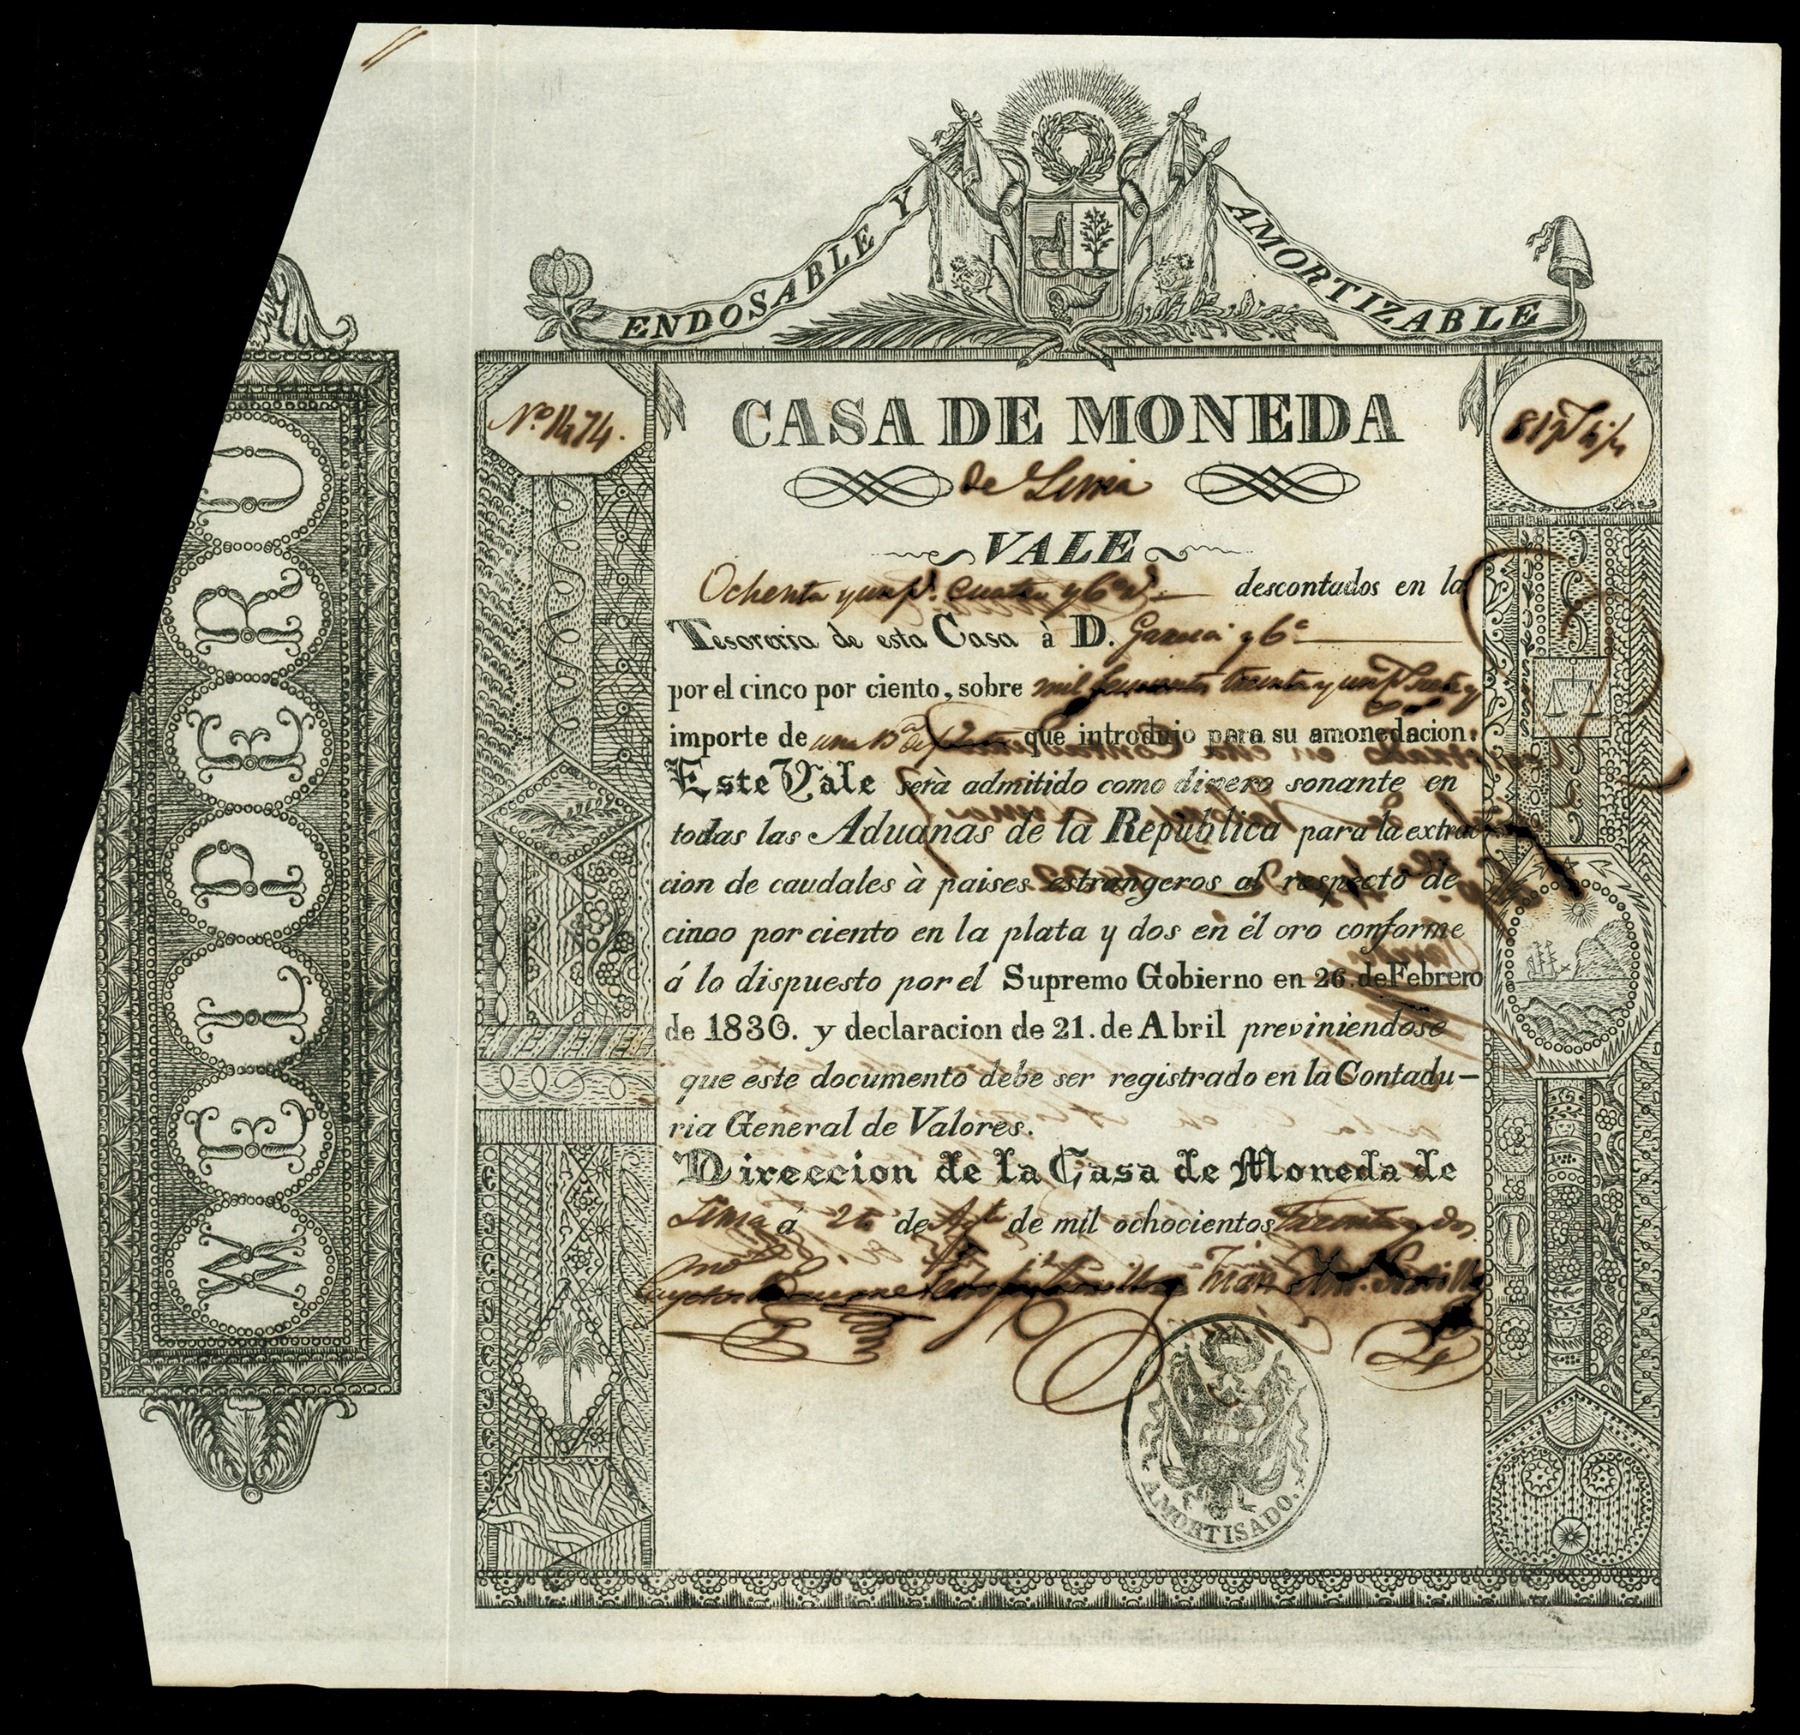 ENDOSABLE Y AMORTIZABLE
WEIPERU
Nº 1474.
CASA DE MONEDA
de Lima
VALE
Ochenta y un ps. cuatro y descontados en la
Tesoreria de esta Casa à D. Garcia y Ca
por el cinco por ciento, sobre mil treinta y un ps
importe de una que introdujo para su amonedacion:
Este Vale serà admitido como dinero sonante en
todas las Aduanas de la República para la extrac
cion de caudales à paises estrangeros al respecto de
cinco por ciento en la plata y dos en él oro conforme
á lo dispuesto por el Supremo Gobierno en 26. de Febrero
de 1830. y declaracion de 21. de Abril previniendose
que este documento debe ser registrado en la Contadu–
ria General de Valores.
Direccion de la Casa de Moneda de
Lima á de de mil ochocientos Treinta y dos
AMORTISADO.